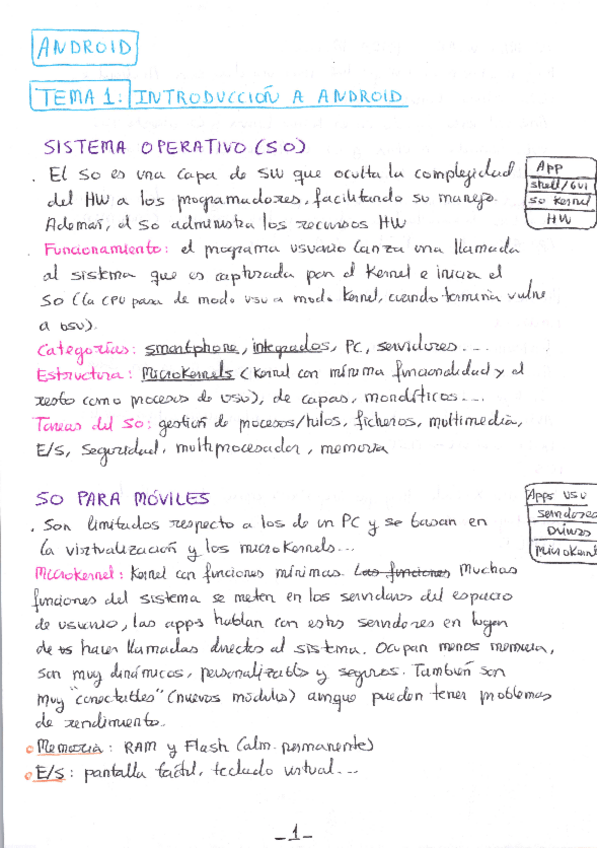 ANDROID
TEMA 1: INTRODUCCIÓN A ANDROID
SISTEMA OPERATIVO (SO)
. El SO es una capa de SW que oculta la complejidad
del HW a los programadores, facilitando su manejo.
Además, el SO administra los recursos HW
App
shell/GUI
SO Kernel
HW
Funcionamiento: el programa usuario lanza una llamada
al sistema que es capturada por el Kernel e inicia el
SO (la CPU pasa de modo usu a modo Kernel, cuando termina vuelve
a usu).
Categorías: smartphone, integrados, PC, servidores....
Estructura: Microkernels (Kernel con mínima funcionalidad y el
resto como procesos de usu), de capas, monolíticos....
Tareas del SO: gestión de procesos/hilos, ficheros, multimedia,
E/S, Seguridad, multiprocesador, memoria
SO PARA MÓVILES
. Son limitados respecto a los de un PC y se basan en
la virtualización y los microkernels...
Apps usu
servidores
Drivers
Microkernel
Microkernel: Kernel con funciones mínimas. Las funciones Muchas
funciones del sistema se meten en los servidores del espacio
de usuario, las apps hablan con estos servidores en lugar
de hacer llamadas directas al sistema. Ocupan menos memoria,
son muy dinámicos, personalizables y seguros. También son
muy "conectables" (nuevos módulos) aunque pueden tener problemas
de rendimiento.
o Memoria: RAM y Flash (alm. permanente)
o E/S: pantalla táctil, teclado virtual...
_1_